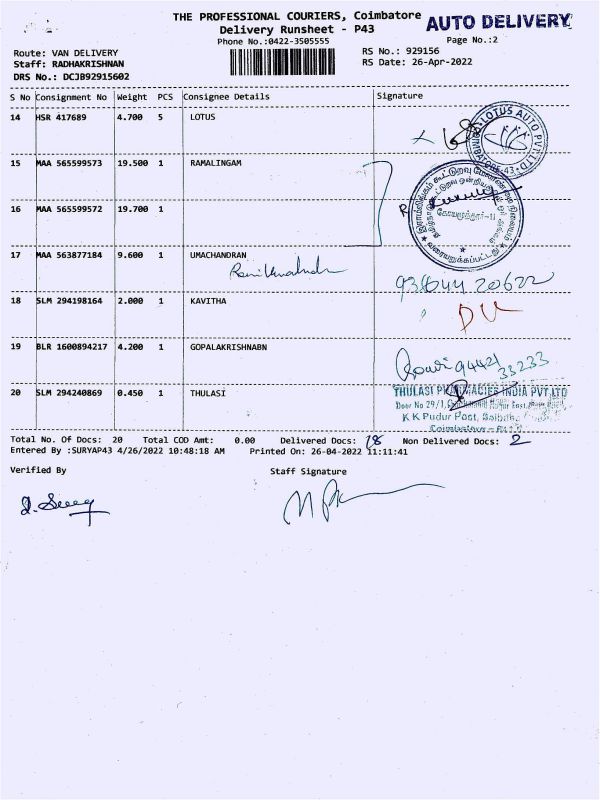 THE PROFESSIONAL COURIERS, Coimbatore
AUTO DELIVERY
Delivery Runsheet - P43
Phone No.:0422-3505555
Page No.:2
Route: VAN DELIVERY
RS No.: 929156
Staff: RADHAKRISHNAN
RS Date: 26-Apr-2022
DRS No.: DCJB92915602
S No Consignment No Weight PCS Consignee Details Signature
14 HSR 417689 4.700 5 LOTUS
LOTUS AUTO PVT. LTD
COIMBATORE-43
15 MAA 565599573 19.500 1 RAMALINGAM
16 MAA 565599572 19.700 1
கோயமுத்தூர்-11
வரையறுக்கப்பட்டது
17 MAA 563877184 9.600 1 UMACHANDRAN
18 SLM 294198164 2.000 1 KAVITHA
19 BLR 1600894217 4.200 1 GOPALAKRISHNABN
94421
33233
20 SLM 294240869 0.450 1 THULASI
THULASI PHARMACIES INDIA PVT LTD
Door No 29/1,
K K Pudur Post,
Total No. Of Docs: 20 Total COD Amt: 0.00 Delivered Docs: 18 Non Delivered Docs: 2
Entered By :SURYAP43 4/26/2022 10:48:18 AM Printed On: 26-04-2022 11:11:41
Verified By Staff Signature